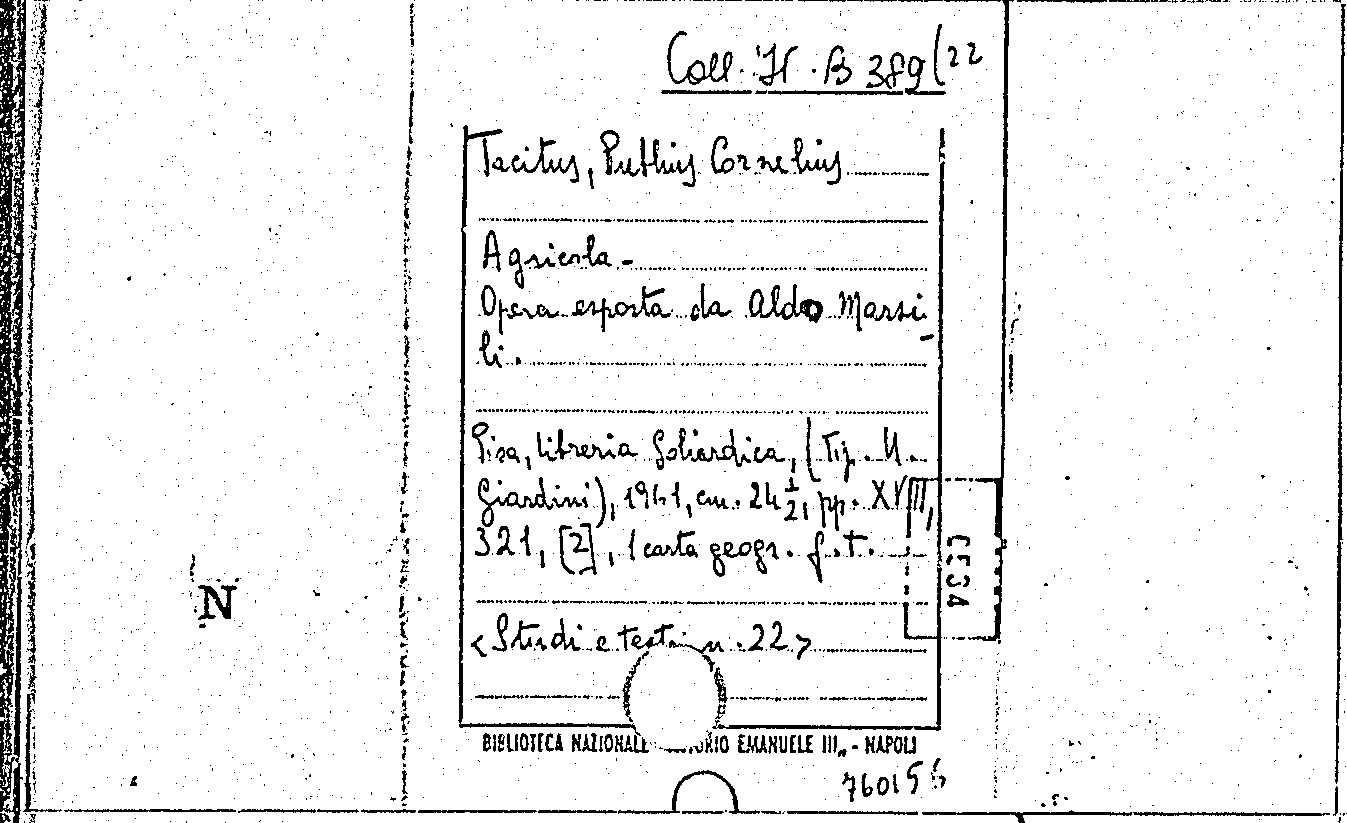 Coll. It. B 389(22
Tacitus, Publius Cornelius
Agricola -
Opera esposta da Aldo Marsi-
li.
Pisa, Libreria Goliardica, (Tip. U.
Giardini), 1961, cm. 24 1/2, pp. XVIII,
321, [2], 1 carta geogr. f. t.
<Studi e testi n. 22>
N
BIBLIOTECA NAZIONALE EMANUELE III„ - NAPOLI
760156